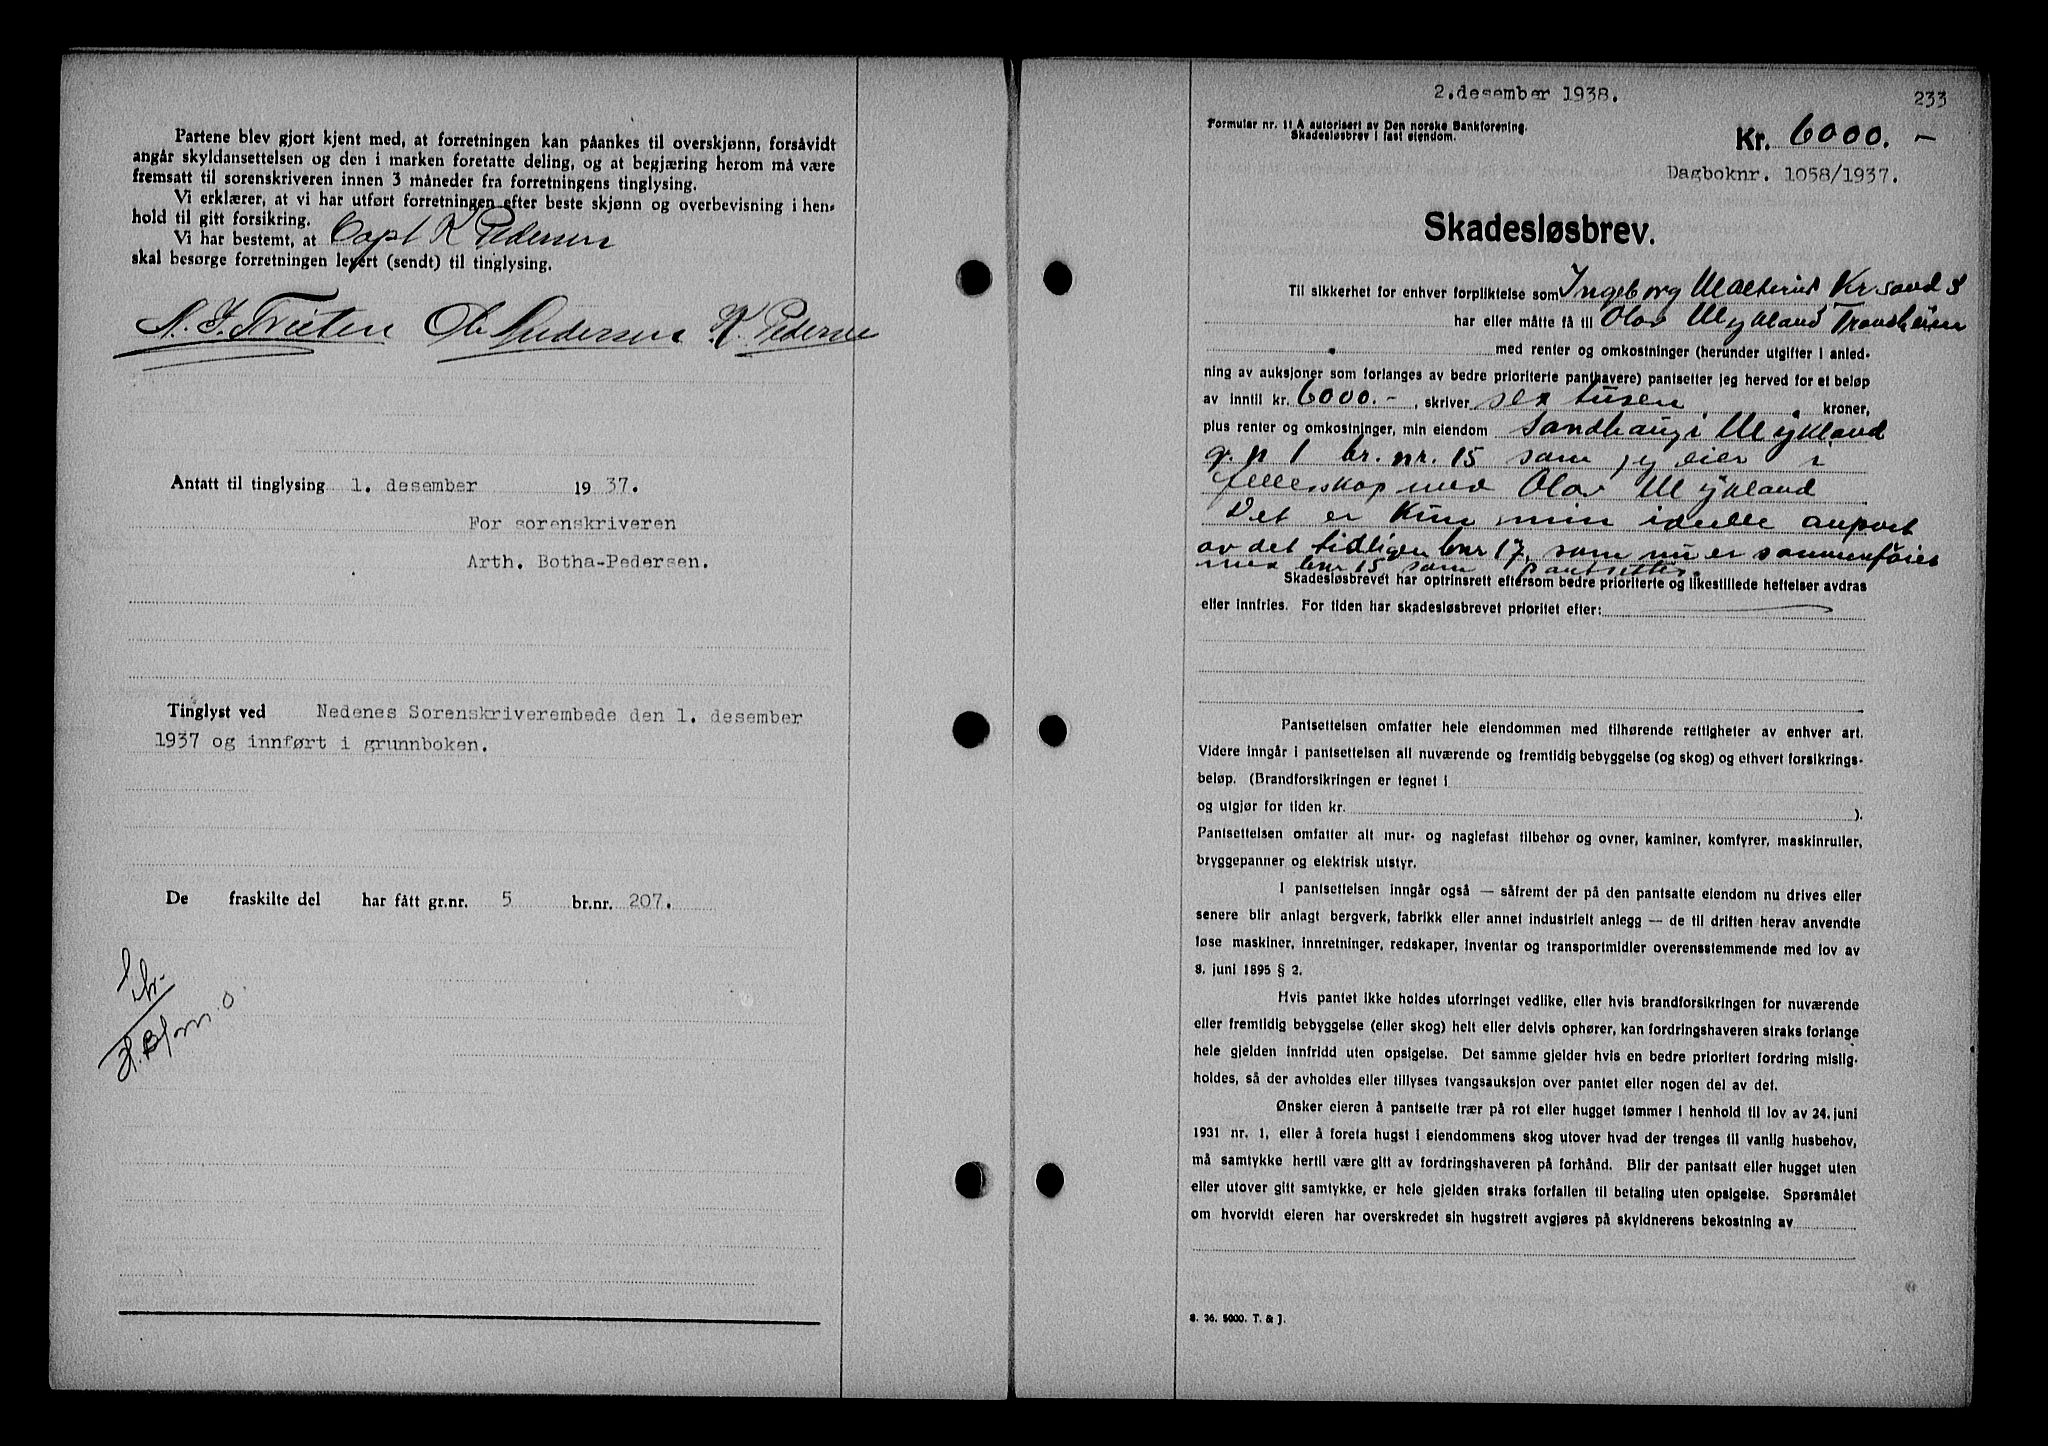 Partene blev gjort kjent med, at forretningen kan påankes til overskjønn, forsåvidt
angår skyldansettelsen og den i marken foretatte deling, og at begjæring herom må være
fremsatt til sorenskriveren innen 3 måneder fra forretningens tinglysing.
Vi erklærer, at vi har utført forretningen efter beste skjønn og overbevisning i hen-
hold til gitt forsikring.
Vi har bestemt, at Capt K Pedersen
skal besørge forretningen levert (sendt) til tinglysing.
N. J. Treiten Ole Andersen K. Pedersen
Antatt til tinglysing 1. desember 1937.
For sorenskriveren
Arth. Botha-Pedersen.
Tinglyst ved Nedenes Sorenskriverembede den 1. desember
1937 og innført i grunnboken.
De fraskilte del har fått gr.nr. 5 br.nr. 207.
2.desember 1938.
233
Formular nr. 11 A autorisert av Den norske Bankforening.
Skadesløsbrev i fast eiendom.
Kr. 6000.-
Dagboknr. 1058/1937.
Skadesløsbrev.
Til sikkerhet for enhver forpliktelse som Ingeborg Kr.sand S
har eller måtte få til Olav Mykland Trondheim
med renter og omkostninger (herunder utgifter i anled-
ning av auksjoner som forlanges av bedre prioriterte panthavere) pantsetter jeg herved for et beløp
av inntil kr. 6000.-, skriver sex tusen kroner,
plus renter og omkostninger, min eiendom Sandhaug i Mykland
g. n 1 br. nr. 15 som jeg eier i
fellesskap med Olav Mykland
Det er kun min ideelle anpart
av det tidligere bnr 17, som nu er sammenføiet
med bnr 15 som pantsettes.
Skadesløsbrevet har optrinsrett eftersom bedre prioriterte og likestillede heftelser avdras
eller innfries. For tiden har skadesløsbrevet prioritet efter:
Pantsettelsen omfatter hele eiendommen med tilhørende rettigheter av enhver art.
Videre inngår i pantsettelsen all nuværende og fremtidig bebyggelse (og skog) og ethvert forsikrings-
beløp. (Brandforsikringen er tegnet i
og utgjør for tiden kr. ).
Pantsettelsen omfatter alt mur- og naglefast tilbehør og ovner, kaminer, komfyrer, maskinruller,
bryggepanner og elektrisk utstyr.
I pantsettelsen inngår også — såfremt der på den pantsatte eiendom nu drives eller
senere blir anlagt bergverk, fabrikk eller annet industrielt anlegg — de til driften herav anvendte
løse maskiner, innretninger, redskaper, inventar og transportmidler overensstemmende med lov av
8. juni 1895 § 2.
Hvis pantet ikke holdes uforringet vedlike, eller hvis brandforsikringen for nuværende
eller fremtidig bebyggelse (eller skog) helt eller delvis ophører, kan fordringshaveren straks forlange
hele gjelden innfridd uten opsigelse. Det samme gjelder hvis en bedre prioritert fordring mislig-
holdes, så der avholdes eller tillyses tvangsauksjon over pantet eller nogen del av det.
Ønsker eieren å pantsette trær på rot eller hugget tømmer i henhold til lov av 24. juni
1931 nr. 1, eller å foreta hugst i eiendommens skog utover hvad der trenges til vanlig husbehov,
må samtykke hertil være gitt av fordringshaveren på forhånd. Blir der pantsatt eller hugget uten
eller utover gitt samtykke, er hele gjelden straks forfallen til betaling uten opsigelse. Spørsmålet
om hvorvidt eieren har overskredet sin hugstrett avgjøres på skyldnerens bekostning av
8. 36. 5000. T. & J.